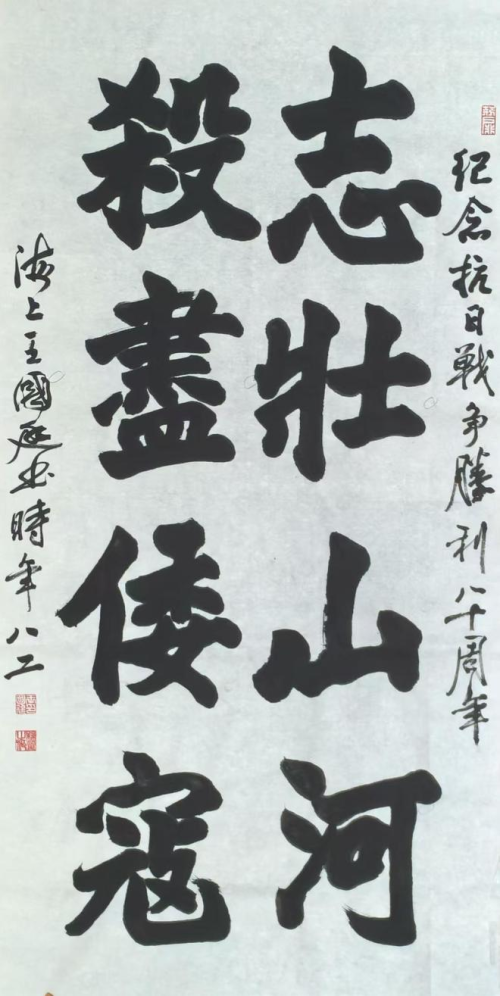 紀念抗日戰争勝利八十周年
志壯山河
殺盡倭寇
海上王國庭书時年八二